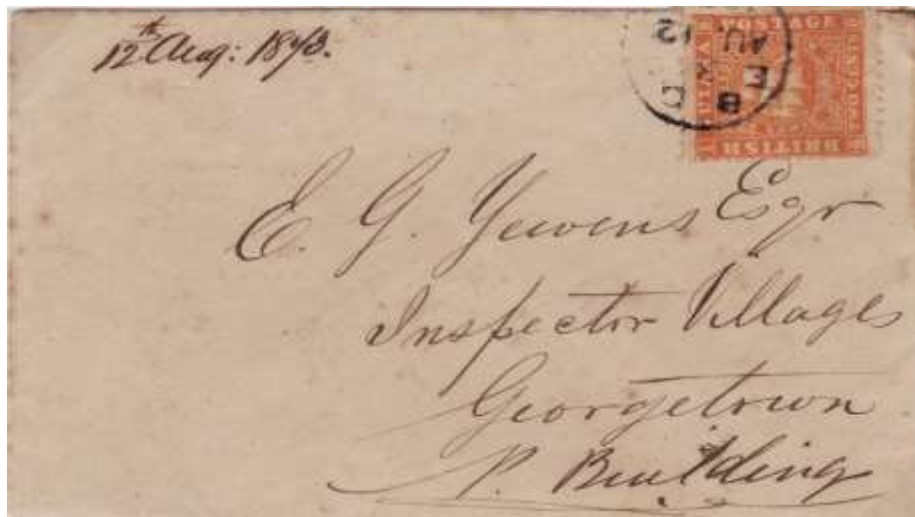 12th Aug: 1873.
POSTAGE
BRITISH
GUIANA
TWO CENTS
B
E
AU. 12
E. G. Yewens Esqr
Inspector Villages
Georgetown
P. Building